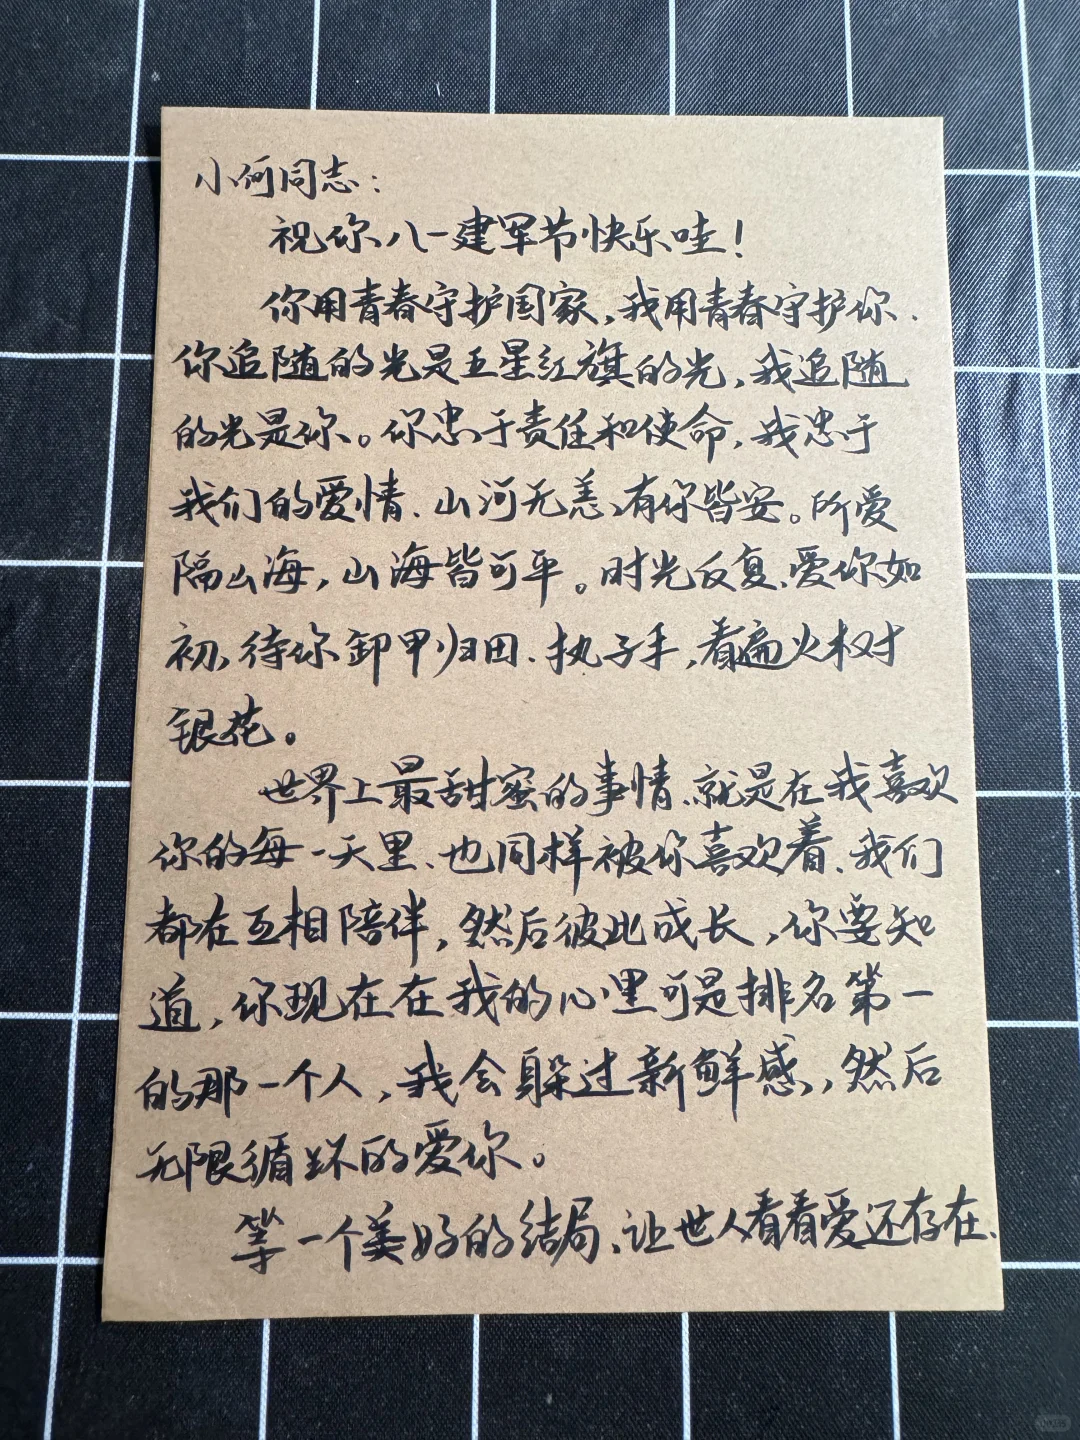 小何同志：
祝你八一建军节快乐哇！
你用青春守护国家，我用青春守护你.
你追随的光是五星红旗的光，我追随
的光是你。你忠于责任和使命，我忠于
我们的爱情.山河无恙、有你皆安。所爱
隔山海，山海皆可平。时光反复、爱你如
初、待你卸甲归田、执子手，看遍火树
银花。
世界上最甜蜜的事情、就是在我喜欢
你的每一天里、也同样被你喜欢着、我们
都在互相陪伴，然后彼此成长，你要知
道，你现在在我的心里可是排名第一
的那一个人，我会躲过新鲜感，然后
无限循环的爱你。
等一个美好的结局、让世人看看爱还存在、